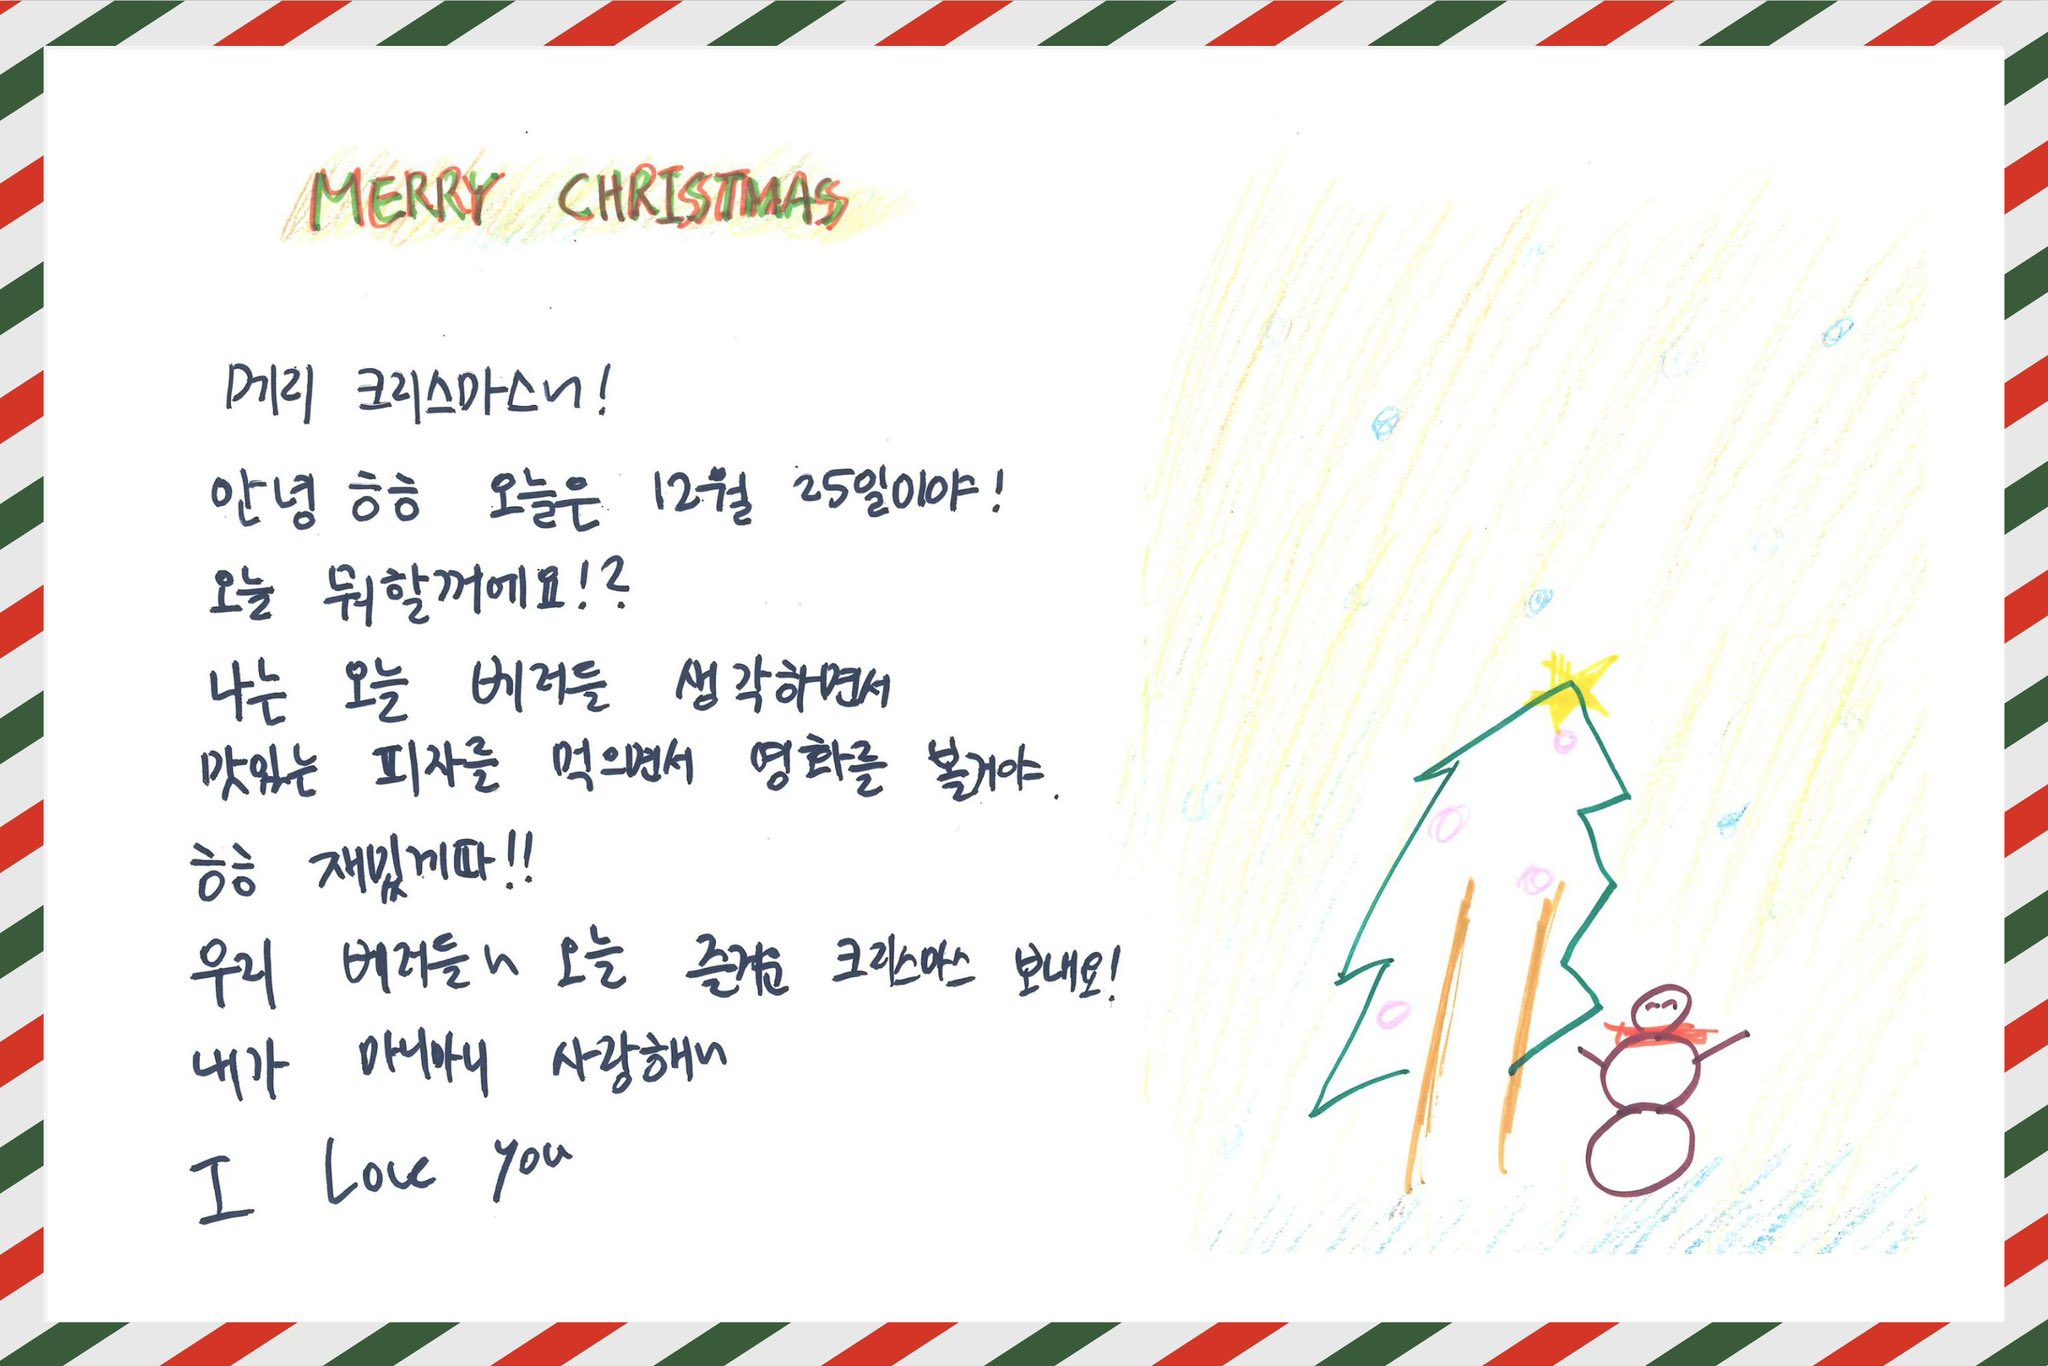 MERRY CHRISTMAS
메리 크리스마스~!
안녕 흐흐 오늘은 12월 25일이야!
오늘 뭐할꺼에요!?
나는 오늘 베러들 생각하면서
맛있는 피자를 먹으면서 영화를 볼거야.
흐흐 재밌게따!!
우리 베러들~ 오늘 즐거운 크리스마스 보내요!
내가 마니마니 사랑해~
I Love you